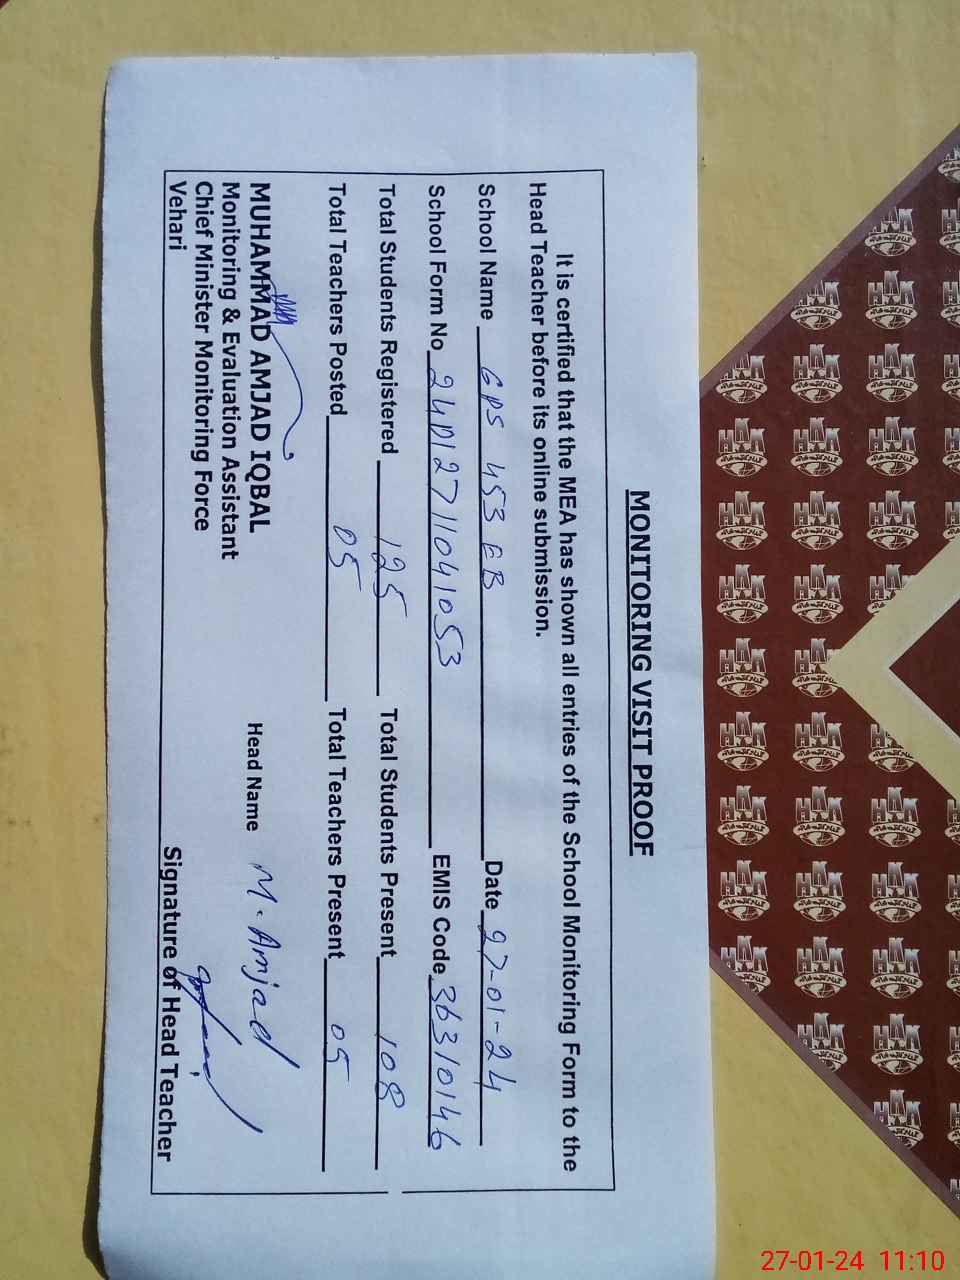 MONITORING VISIT PROOF
It is certified that the MEA has shown all entries of the School Monitoring Form to the
Head Teacher before its online submission.
School Name GPS 453 EB Date 27-01-24
School Form No 24D12711041053 EMIS Code 36310146
Total Students Registered 125 Total Students Present 108
Total Teachers Posted 05 Total Teachers Present 05
MUHAMMAD AMJAD IQBAL
Monitoring & Evaluation Assistant
Chief Minister Monitoring Force
Vehari
Head Name M. Amjad
Signature of Head Teacher
27-01-24 11:10